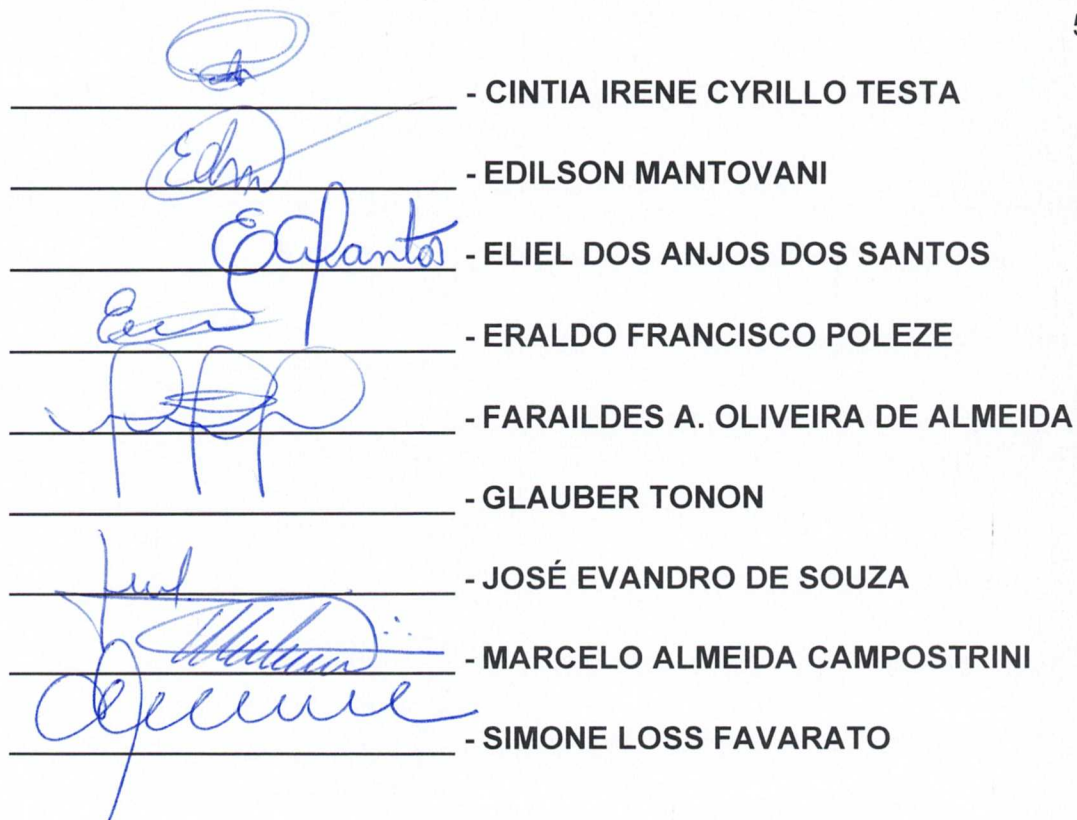 5
- CINTIA IRENE CYRILLO TESTA
- EDILSON MANTOVANI
EASantos - ELIEL DOS ANJOS DOS SANTOS
- ERALDO FRANCISCO POLEZE
- FARAILDES A. OLIVEIRA DE ALMEIDA
- GLAUBER TONON
- JOSÉ EVANDRO DE SOUZA
- MARCELO ALMEIDA CAMPOSTRINI
- SIMONE LOSS FAVARATO